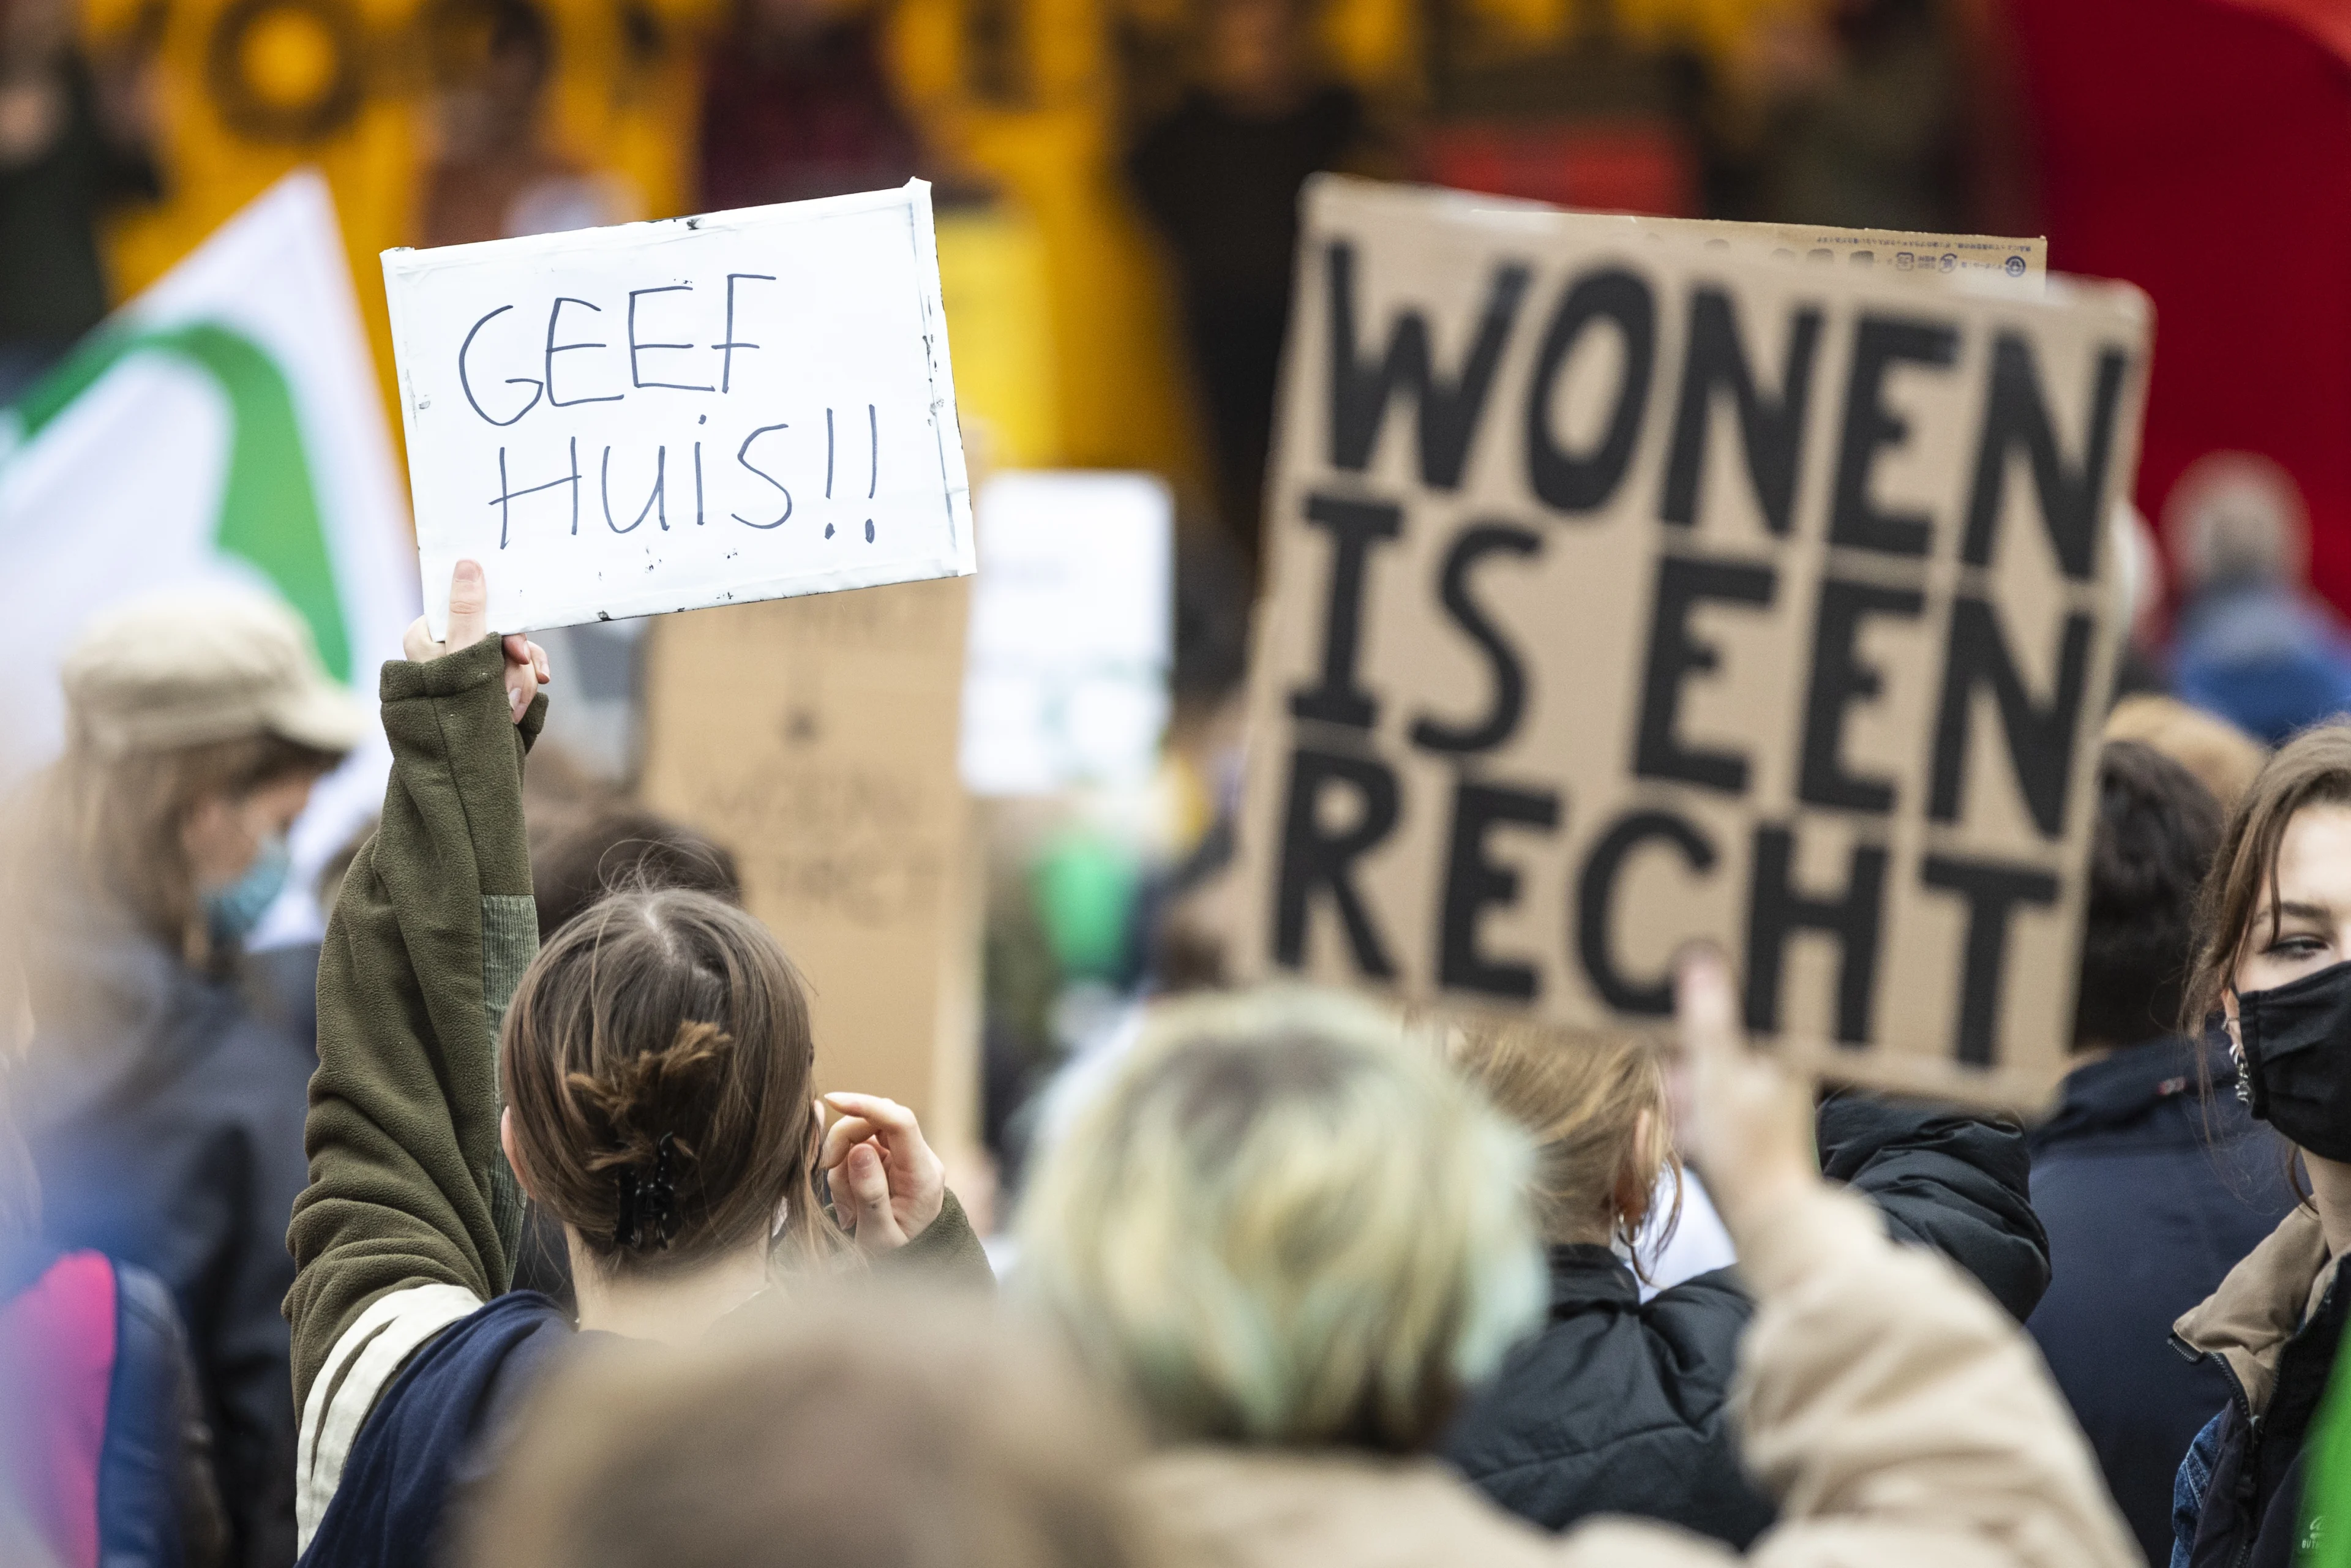 GEEF
HUiS!!
WONEN
IS EEN
RECHT